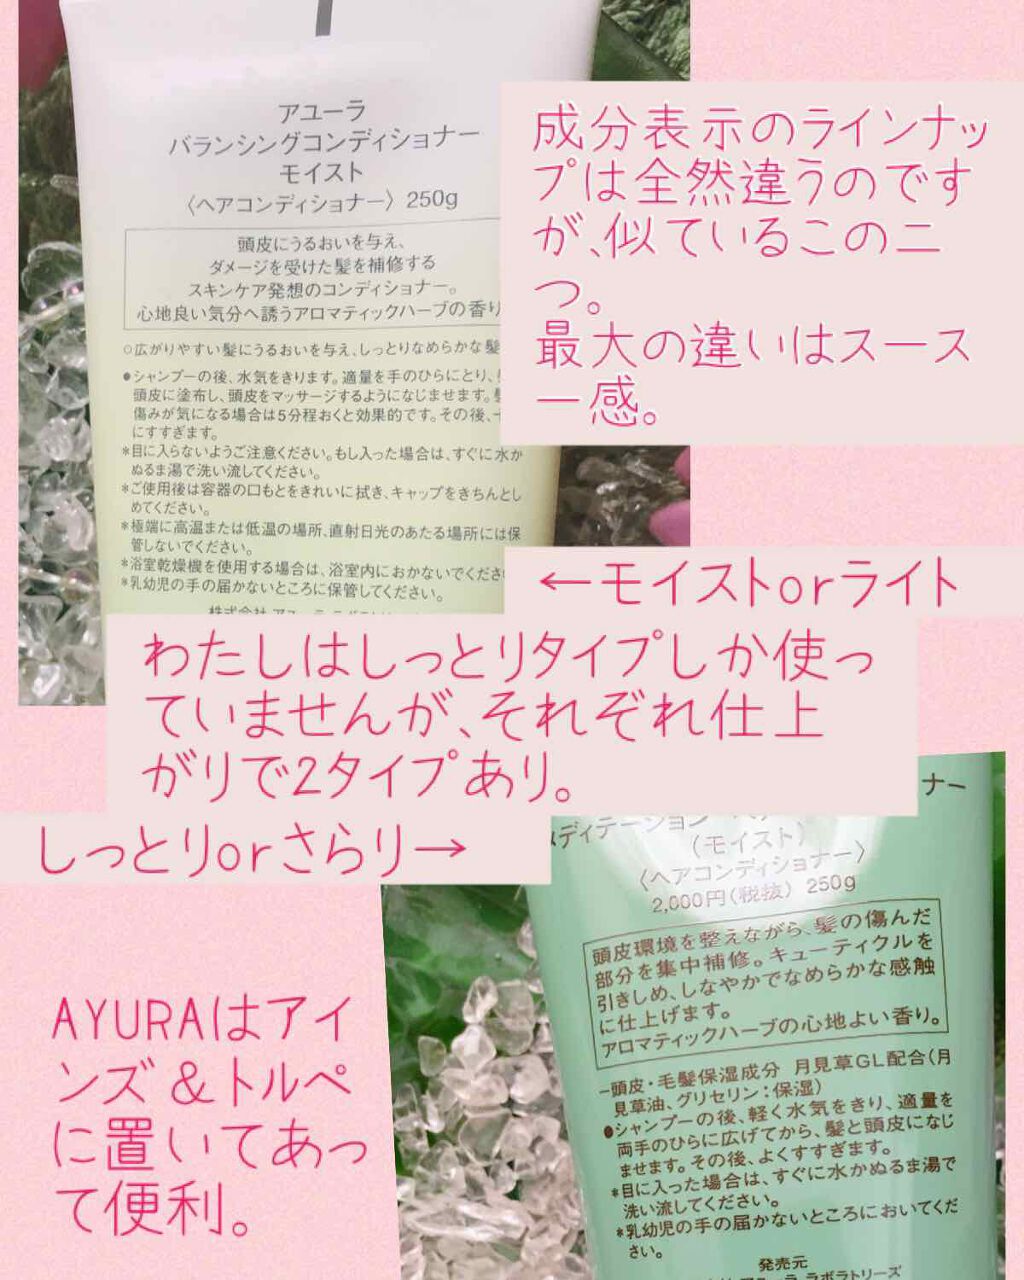 アユーラ
バランシングコンディショナー
モイスト
〈ヘアコンディショナー〉250g
頭皮にうるおいを与え、
ダメージを受けた髪を補修する
スキンケア発想のコンディショナー。
心地良い気分へ誘うアロマティックハーブの香り
○広がりやすい髪にうるおいを与え、しっとりなめらかな髪
●シャンプーの後、水気をきります。適量を手のひらにとり、
頭皮に塗布し、頭皮をマッサージするようになじませます。
傷みが気になる場合は5分程おくと効果的です。その後、
にすすぎます。
*目に入らないようご注意ください。もし入った場合は、すぐに水か
ぬるま湯で洗い流してください。
*ご使用後は容器の口もとをきれいに拭き、キャップをきちんとし
めてください。
*極端に高温または低温の場所、直射日光のあたる場所には保
管しないでください。
*浴室乾燥機を使用する場合は、浴室内におかないでくださ
*乳幼児の手の届かないところに保管してください。
成分表示のラインナッ
プは全然違うのです
が、似ているこの二
つ。
最大の違いはスース
ー感。
←モイストorライト
わたしはしっとりタイプしか使っ
ていませんが、それぞれ仕上
がりで2タイプあり。
しっとりorさらり→
ナー
メディテーション
(モイスト)
〈ヘアコンディショナー〉
2,000円(税抜) 250g
頭皮環境を整えながら、髪の傷んだ
部分を集中補修。キューティクルを
引きしめ、しなやかでなめらかな感触
に仕上げます。
アロマティックハーブの心地よい香り。
−頭皮・毛髪保湿成分 月見草GL配合(月
見草油、グリセリン:保湿)
●シャンプーの後、軽く水気をきり、適量を
両手のひらに広げてから、髪と頭皮になじ
ませます。その後、よくすすぎます。
*目に入った場合は、すぐに水かぬるま湯で
洗い流してください。
*乳幼児の手の届かないところにおいてくだ
さい。
発売元
アユーララボラトリーズ
AYURAはアイ
ンズ&トルペ
に置いてあっ
て便利。